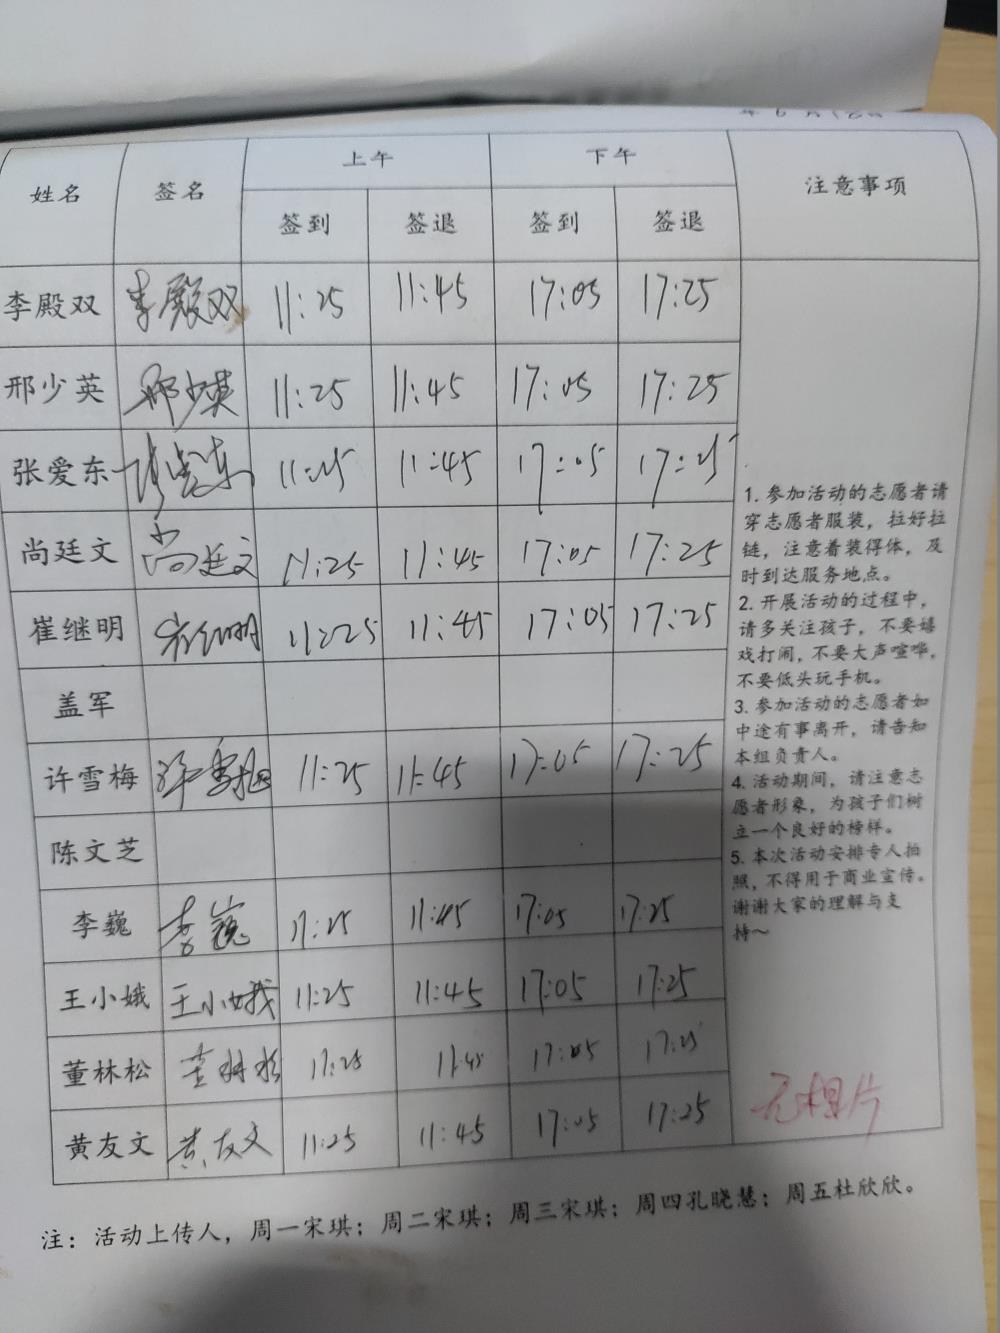 年 6 月
姓名 签名 上午 下午 注意事项
签到 签退 签到 签退
李殿双 李殿双 11:25 11:45 17:05 17:25
邢少英 邢少英 11:25 11:45 17:05 17:25
张爱东 张爱东 11:25 11:45 17:05 17:25
尚廷文 尚廷文 11:25 11:45 17:05 17:25
崔继明 崔继明 11:25 11:45 17:05 17:25
盖军
许雪梅 许雪梅 11:25 11:45 17:05 17:25
陈文芝
李巍 李巍 11:25 11:45 17:05 17:25
王小娥 王小娥 11:25 11:45 17:05 17:25
董林松 董林松 11:25 11:45 17:05 17:25
黄友文 黄友文 11:25 11:45 17:05 17:25
1. 参加活动的志愿者请
穿志愿者服装，拉好拉
链，注意着装得体，及
时到达服务地点。
2. 开展活动的过程中，
请多关注孩子，不要嬉
戏打闹，不要大声喧哗，
不要低头玩手机。
3. 参加活动的志愿者如
中途有事离开，请告知
本组负责人。
4. 活动期间，请注意志
愿者形象，为孩子们树
立一个良好的榜样。
5. 本次活动安排专人拍
照，不得用于商业宣传。
谢谢大家的理解与支
持～
无相片
注：活动上传人，周一宋琪；周二宋琪；周三宋琪；周四孔晓慧；周五杜欣欣。